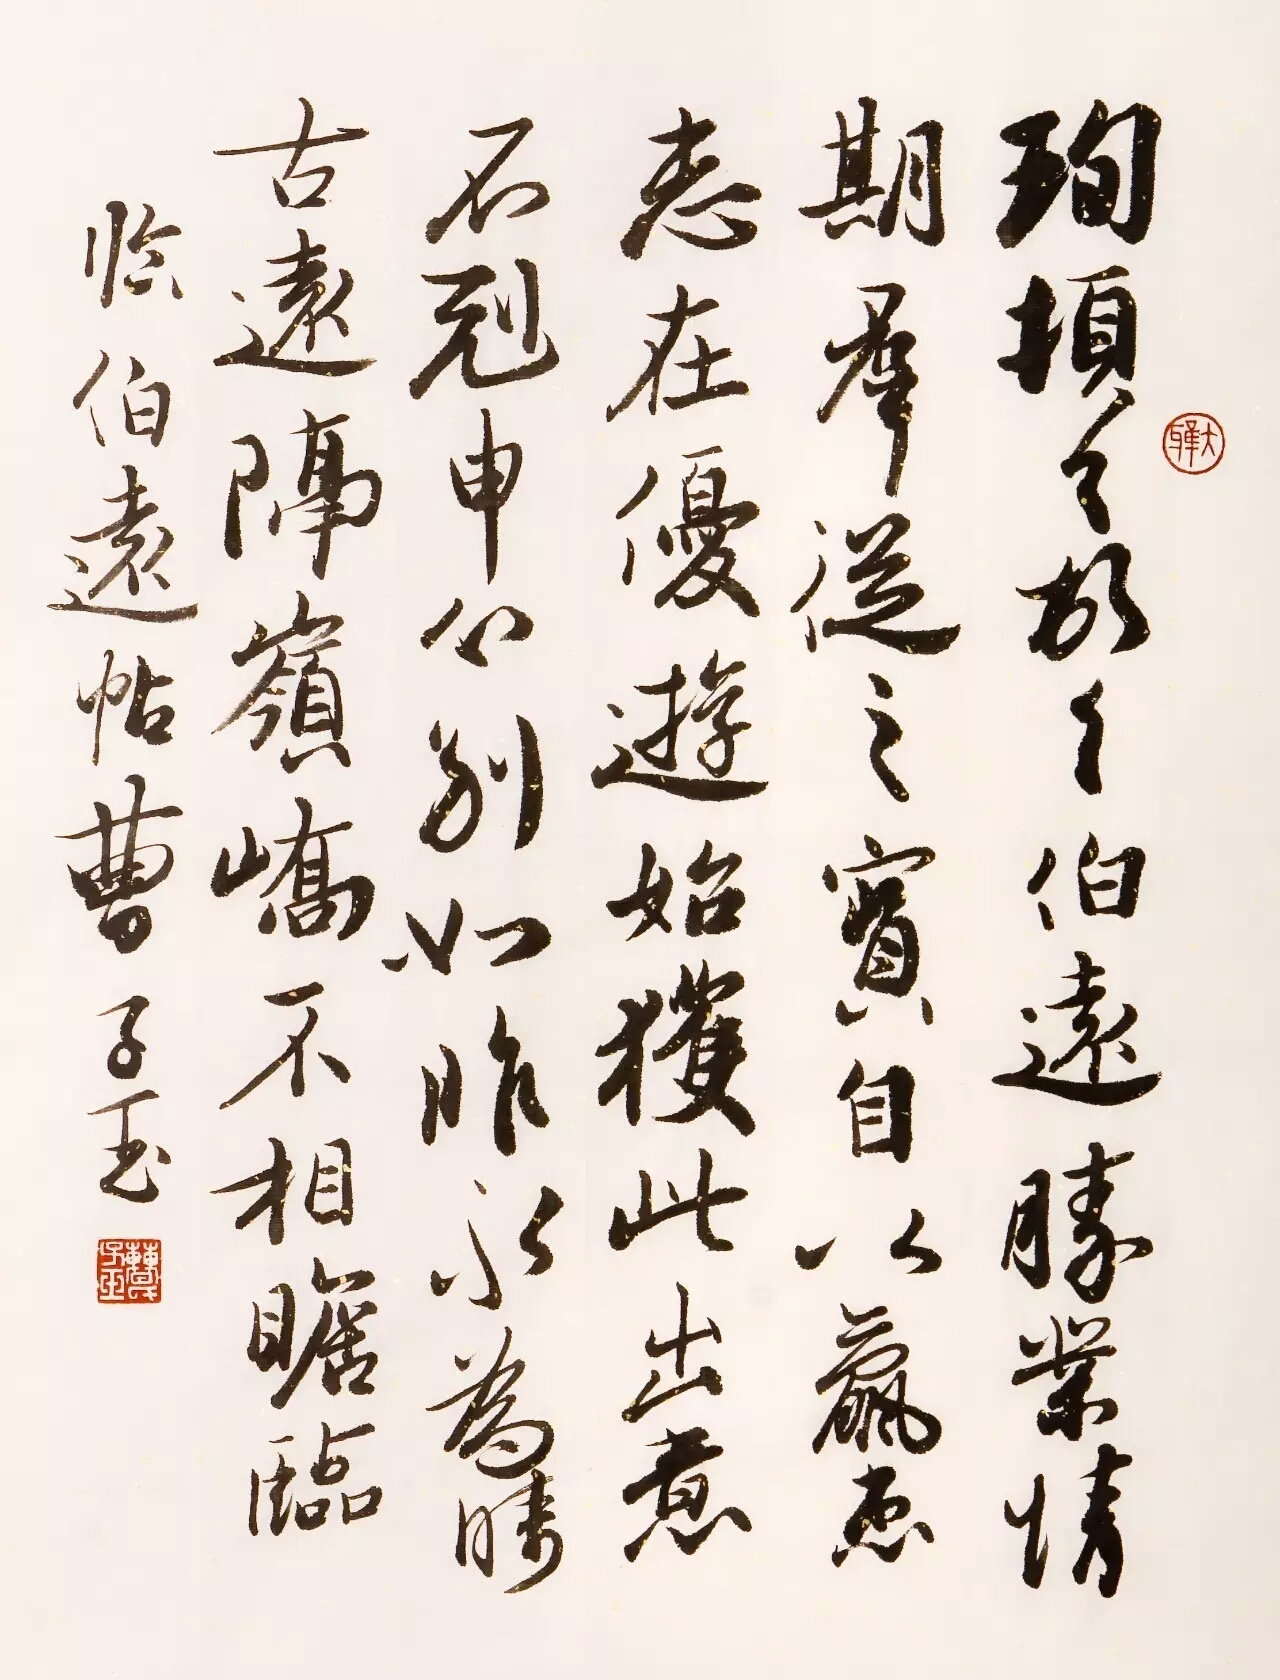 珣頓首頓首伯遠勝業情
期群從之寶自以羸患
志在優遊始獲此出意
不剋申分別如昨永為疇
古遠隔嶺嶠不相瞻臨
臨伯遠帖曹子玉